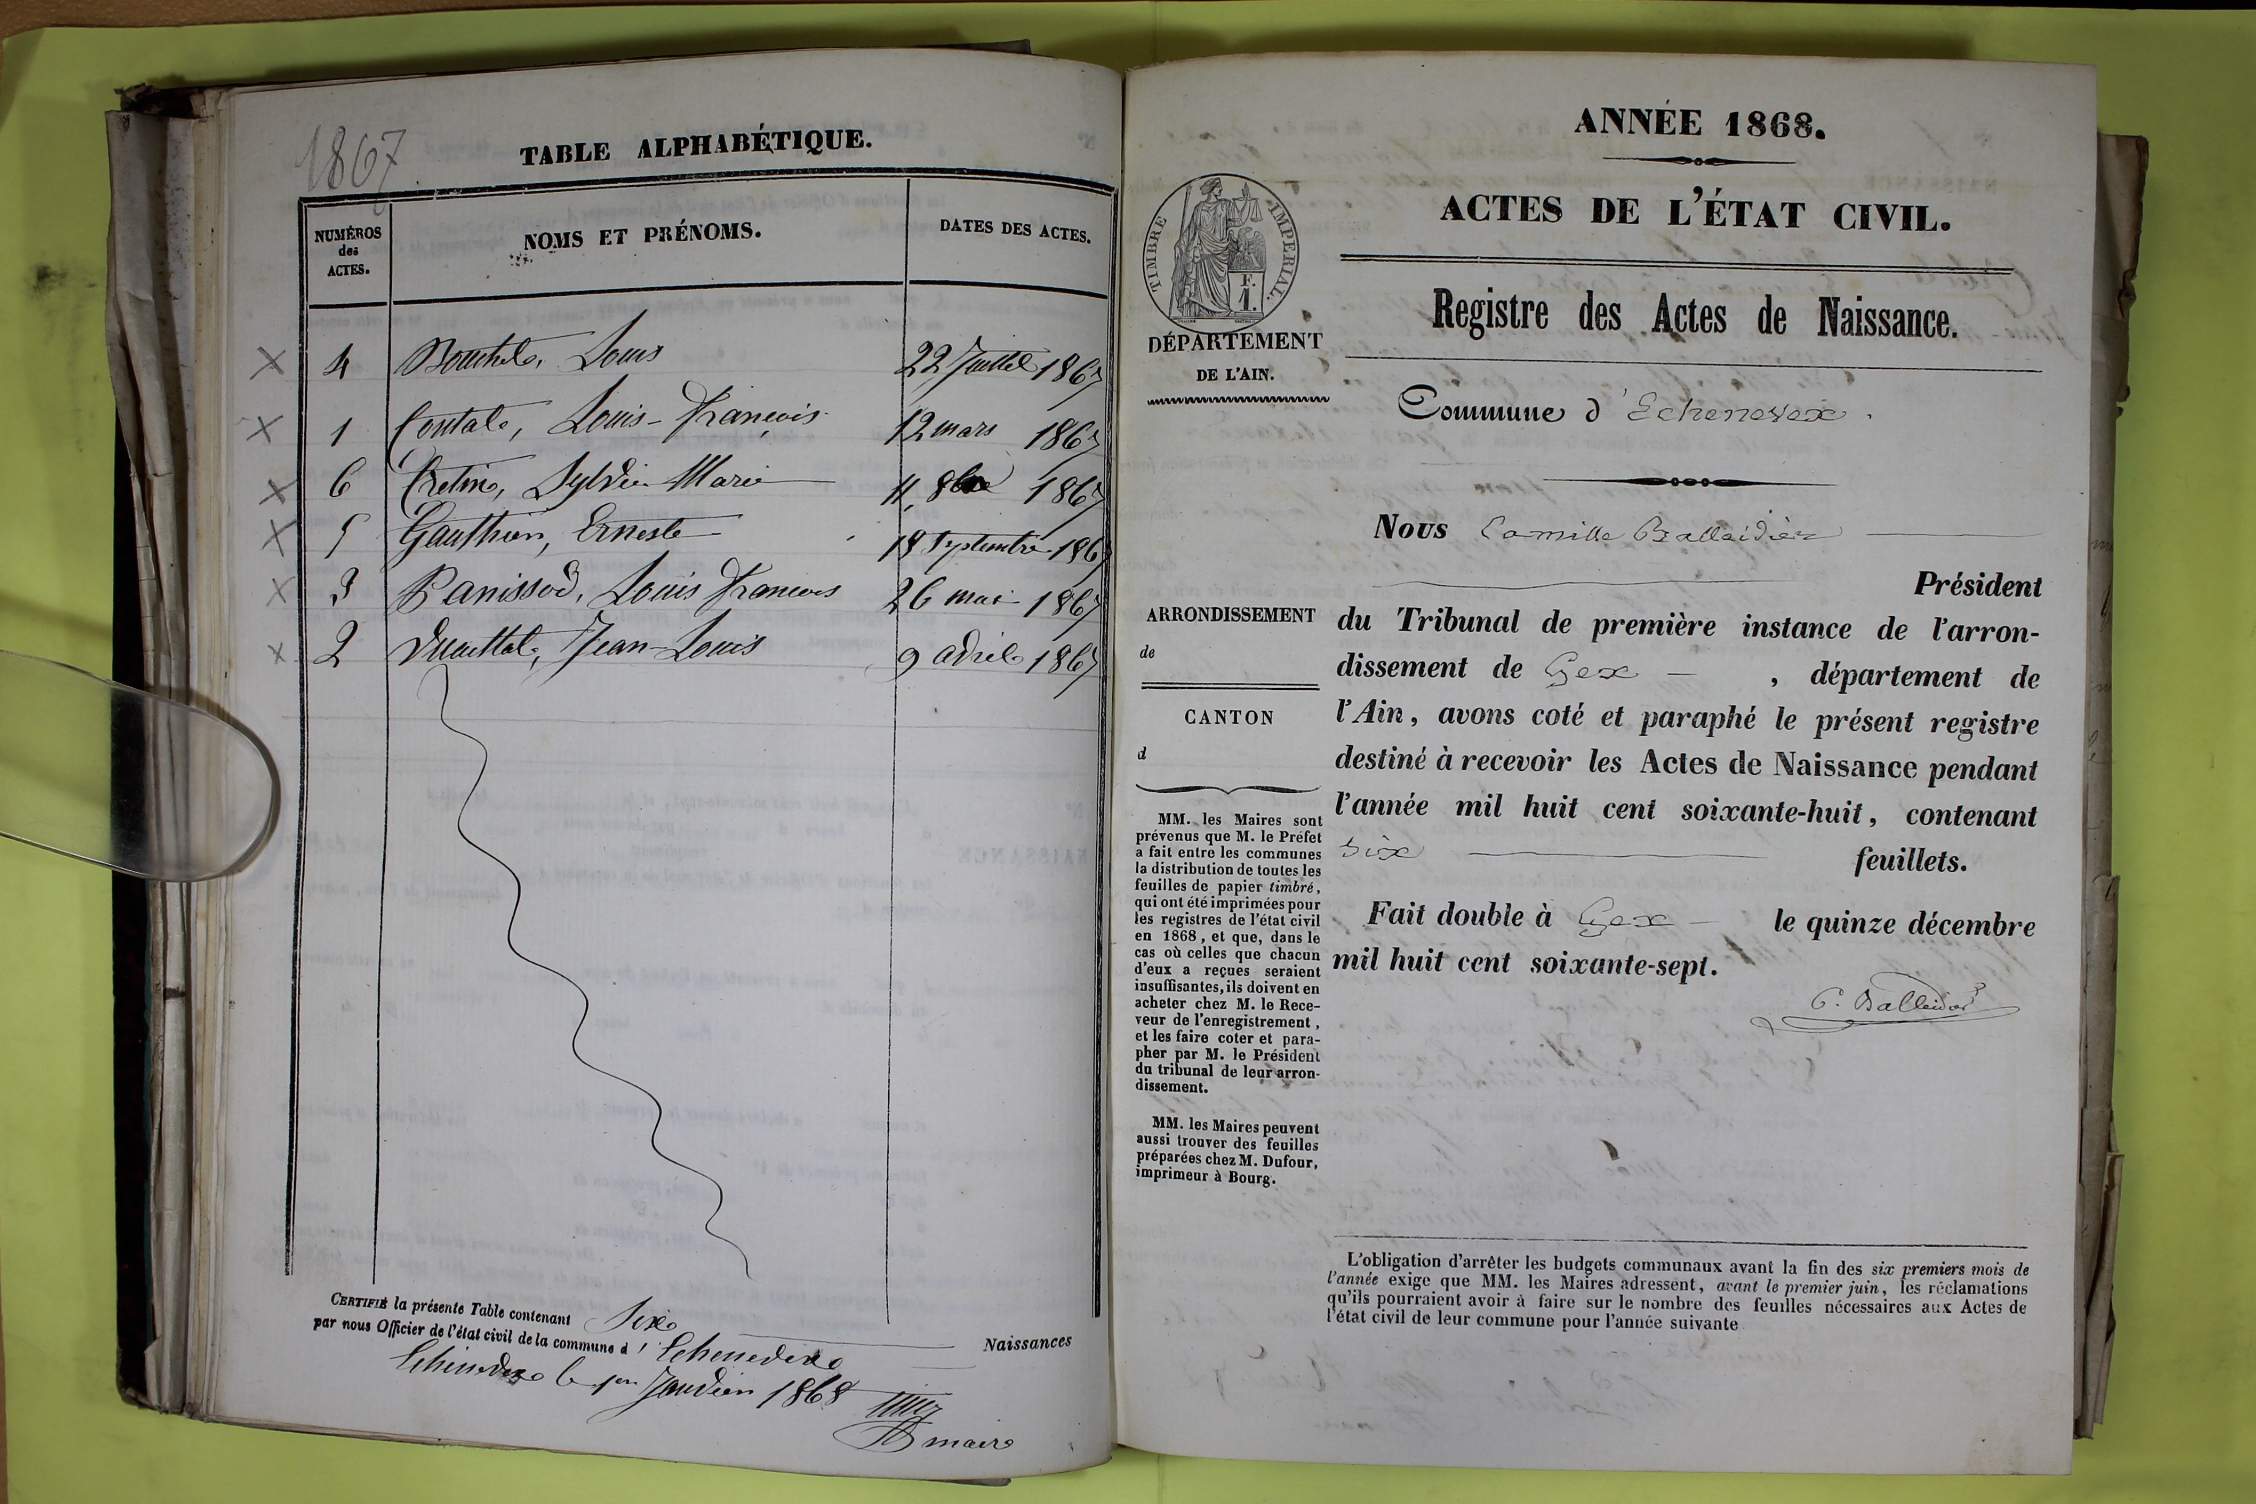 1867
TABLE ALPHABÉTIQUE.
NUMÉROS
des
ACTES.
NOMS ET PRÉNOMS.
DATES DES ACTES.
4 Louis 22 Juillet 1867
1 Louis-François 12 mars 1867
6 Cretin, Sylvie Marie 11, 8bre 1867
5 Gauthier, Ernest 18 septembre 1867
3 Panissod, Louis François 26 mai 1867
2 Vuaillat, Jean-Louis 9 avril 1867
CERTIFIÉ la présente Table contenant Six Naissances
par nous Officier de l'état civil de la commune d'Echenevex
Echenevex le 1er Janvier 1868
maire
ANNÉE 1868.
ACTES DE L'ÉTAT CIVIL.
TIMBRE IMPÉRIAL.
F.
1.
DÉPARTEMENT
DE L'AIN.
ARRONDISSEMENT
de
CANTON
d
MM. les Maires sont
prévenus que M. le Préfet
a fait entre les communes
la distribution de toutes les
feuilles de papier timbré,
qui ont été imprimées pour
les registres de l'état civil
en 1868, et que, dans le
cas où celles que chacun
d'eux a reçues seraient
insuffisantes, ils doivent en
acheter chez M. le Rece-
veur de l'enregistrement,
et les faire coter et para-
pher par M. le Président
du tribunal de leur arron-
dissement.
MM. les Maires peuvent
aussi trouver des feuilles
préparées chez M. Dufour,
imprimeur à Bourg.
Registre des Actes de Naissance.
Commune d'Echenevex.
Nous Camille Balleidier
Président
du Tribunal de première instance de l'arron-
dissement de Gex, département de
l'Ain, avons coté et paraphé le présent registre
destiné à recevoir les Actes de Naissance pendant
l'année mil huit cent soixante-huit, contenant
six feuillets.
Fait double à Gex le quinze décembre
mil huit cent soixante-sept.
C. Balleidier
L'obligation d'arrêter les budgets communaux avant la fin des six premiers mois de
l'année exige que MM. les Maires adressent, avant le premier juin, les réclamations
qu'ils pourraient avoir à faire sur le nombre des feuilles nécessaires aux Actes de
l'état civil de leur commune pour l'année suivante.